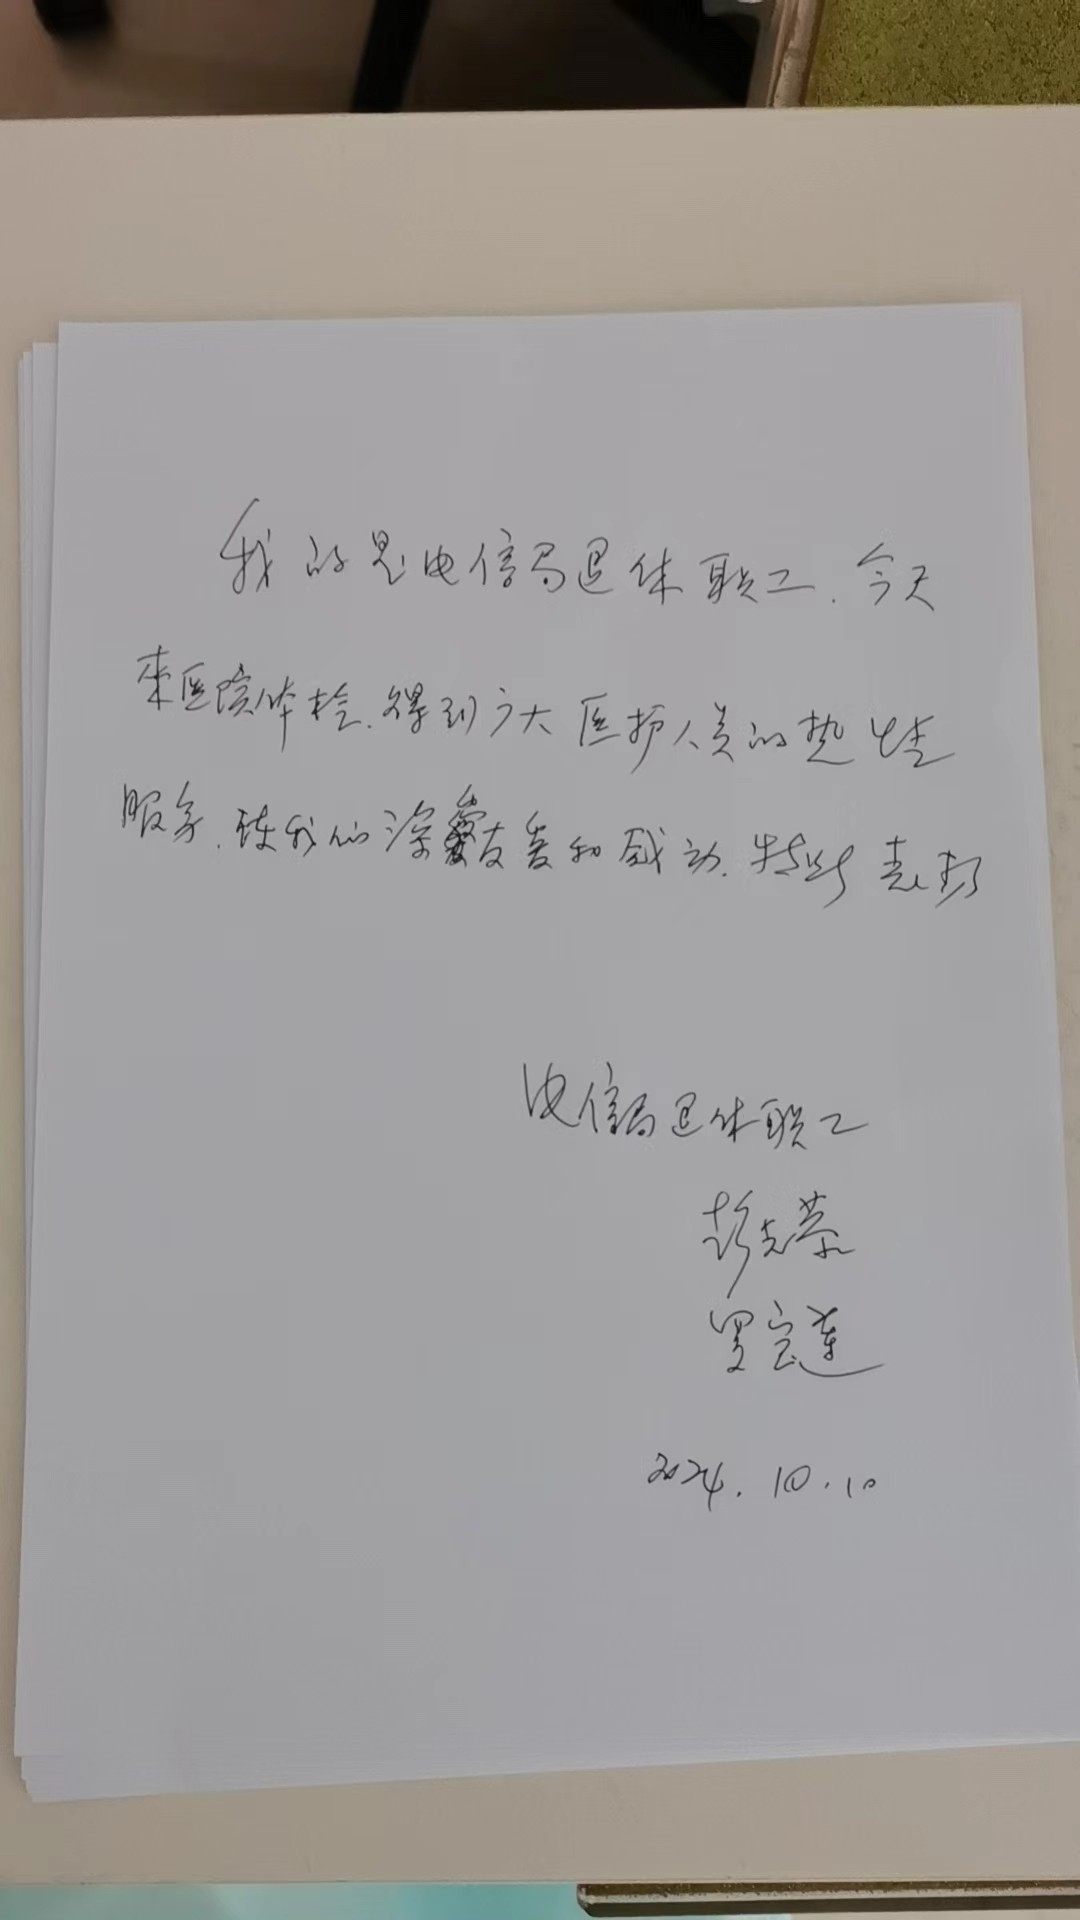 我们是电信局退休职工.今天
来医院体检.得到广大医护人员的热情
服务.使我们深受友善和感动.特此表扬
电信局退休职工
彭克荣
罗宝莲
2024.10.10